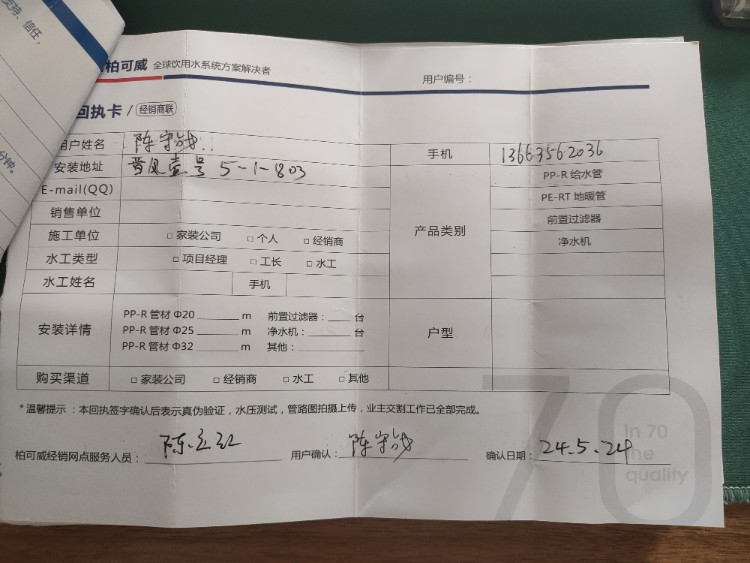 支持、信任，
分钟。
柏可威 全球饮用水系统方案解决者
用户编号：
回执卡 / 经销商联
用户姓名 陈守战 手机 13663562036
安装地址 5-1-803 产品类别 PP-R 给水管
E-mail(QQ) PE-RT 地暖管
销售单位 前置过滤器
施工单位 □ 家装公司 □ 个人 □ 经销商 净水机
水工类型 □ 项目经理 □ 工长 □ 水工
水工姓名 手机
安装详情 PP-R 管材 Φ20 ______ m 前置过滤器：____ 台 户型
PP-R 管材 Φ25 ______ m 净水机：____ 台
PP-R 管材 Φ32 ______ m 其他：______
购买渠道 □ 家装公司 □ 经销商 □ 水工 □ 其他
*温馨提示：本回执签字确认后表示真伪验证，水压测试，管路图拍摄上传，业主交割工作已全部完成。
柏可威经销网点服务人员： 用户确认：陈守战 确认日期：24.5.24
70
In 70
the
quality